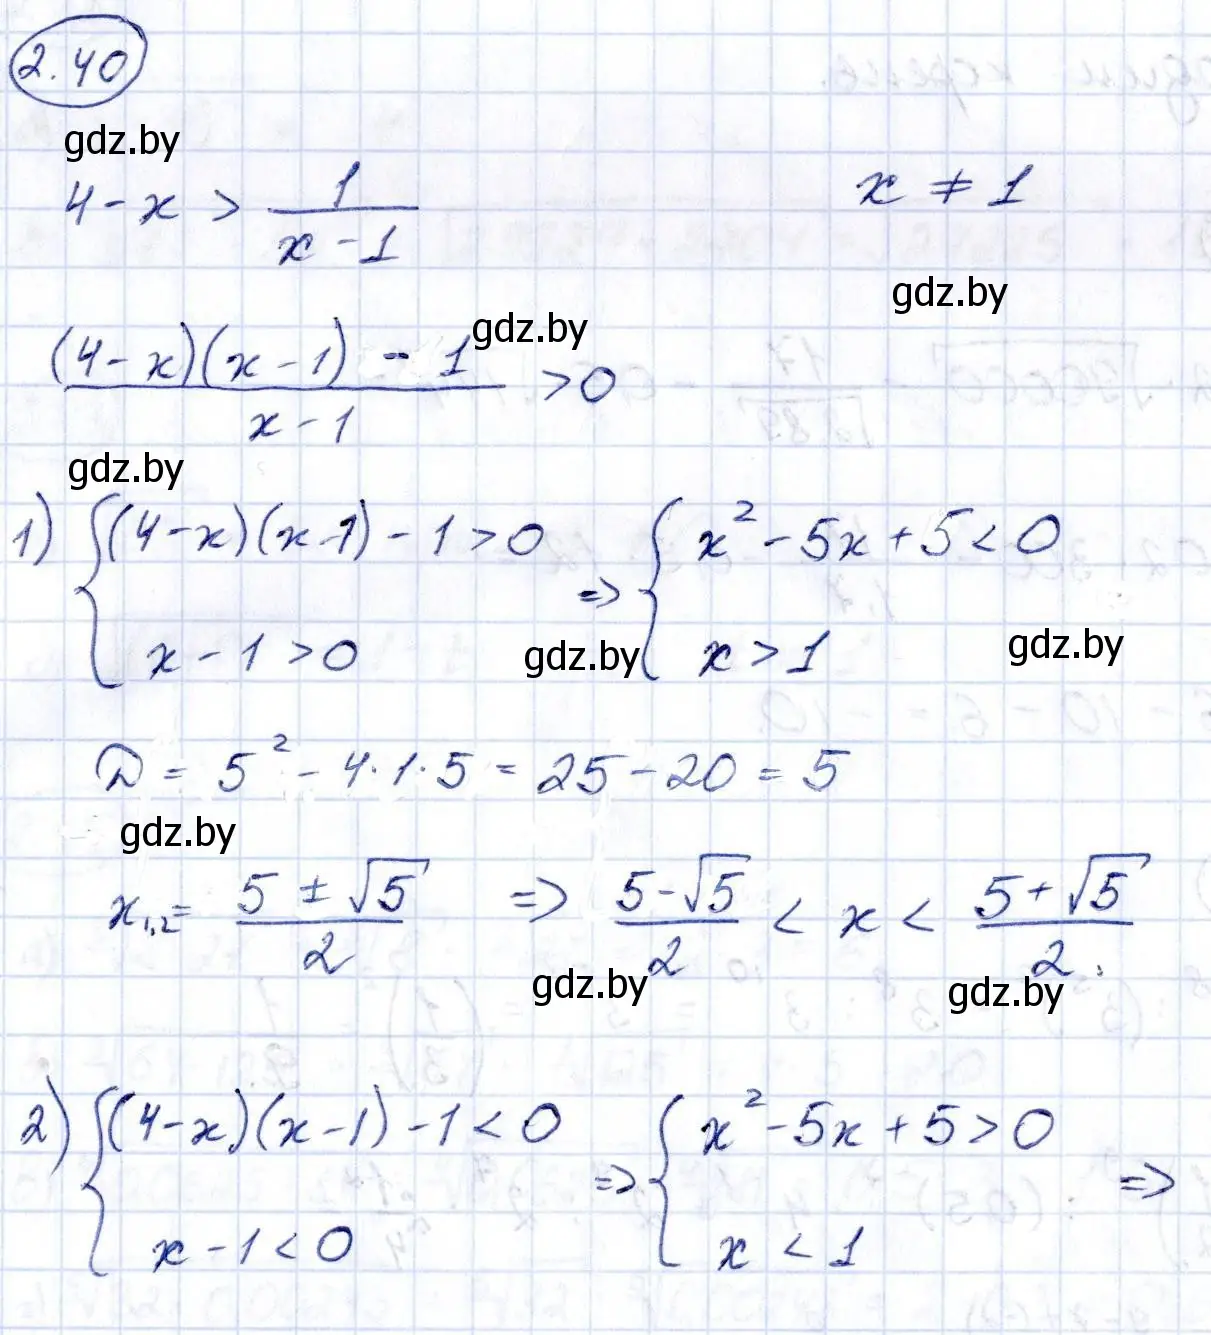 2.40
gdz.by
4-x > 1/(x-1)    x ≠ 1
gdz.by
((4-x)(x-1) - 1)/(x-1) > 0    gdz.by
gdz.by
1) { (4-x)(x-1) - 1 > 0    => { x² - 5x + 5 < 0
x - 1 > 0    gdz.by    x > 1    gdz.by
D = 5² - 4·1·5 = 25 - 20 = 5
gdz.by
x₁,₂ = (5 ± √5)/2    => (5-√5)/2 < x < (5+√5)/2.
gdz.by    gdz.by
2) { (4-x)(x-1) - 1 < 0    => { x² - 5x + 5 > 0    =>
x - 1 < 0    x < 1